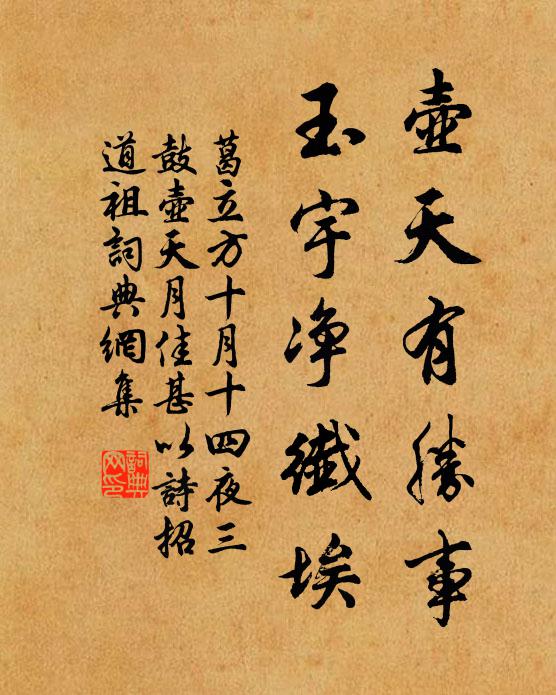 壺天有勝事
玉宇净纖埃
葛立方十月十四夜三
鼓壺天月佳甚以詩招
道祖詞典網集
詞典
网印